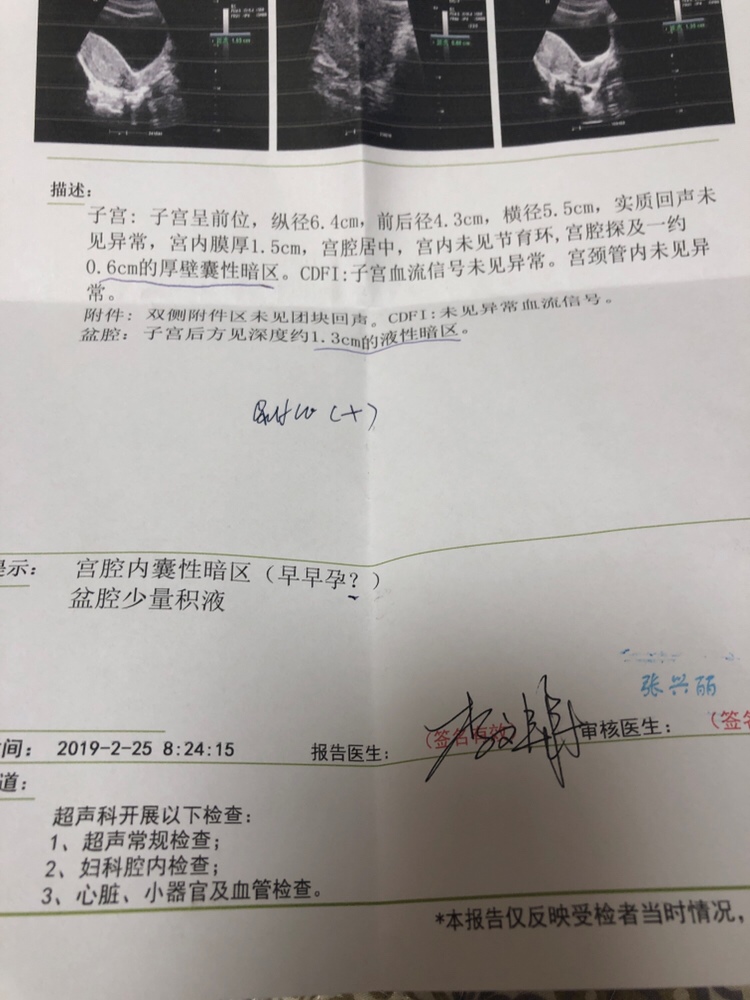 描述:
子宫: 子宫呈前位, 纵径6.4cm, 前后径4.3cm, 横径5.5cm, 实质回声未
见异常, 宫内膜厚1.5cm, 宫腔居中, 宫内未见节育环,宫腔探及一约
0.6cm的厚壁囊性暗区。CDFI:子宫血流信号未见异常。宫颈管内未见异
常。
附件: 双侧附件区未见团块回声。CDFI:未见异常血流信号。
盆腔: 子宫后方见深度约1.3cm的液性暗区。
(+)
提示: 宫腔内囊性暗区(早早孕?)
盆腔少量积液
张兴丽
间: 2019-2-25 8:24:15 报告医生: (签名有效) 审核医生: (签名
道:
超声科开展以下检查:
1、超声常规检查;
2、妇科腔内检查;
3、心脏、小器官及血管检查。
*本报告仅反映受检者当时情况,